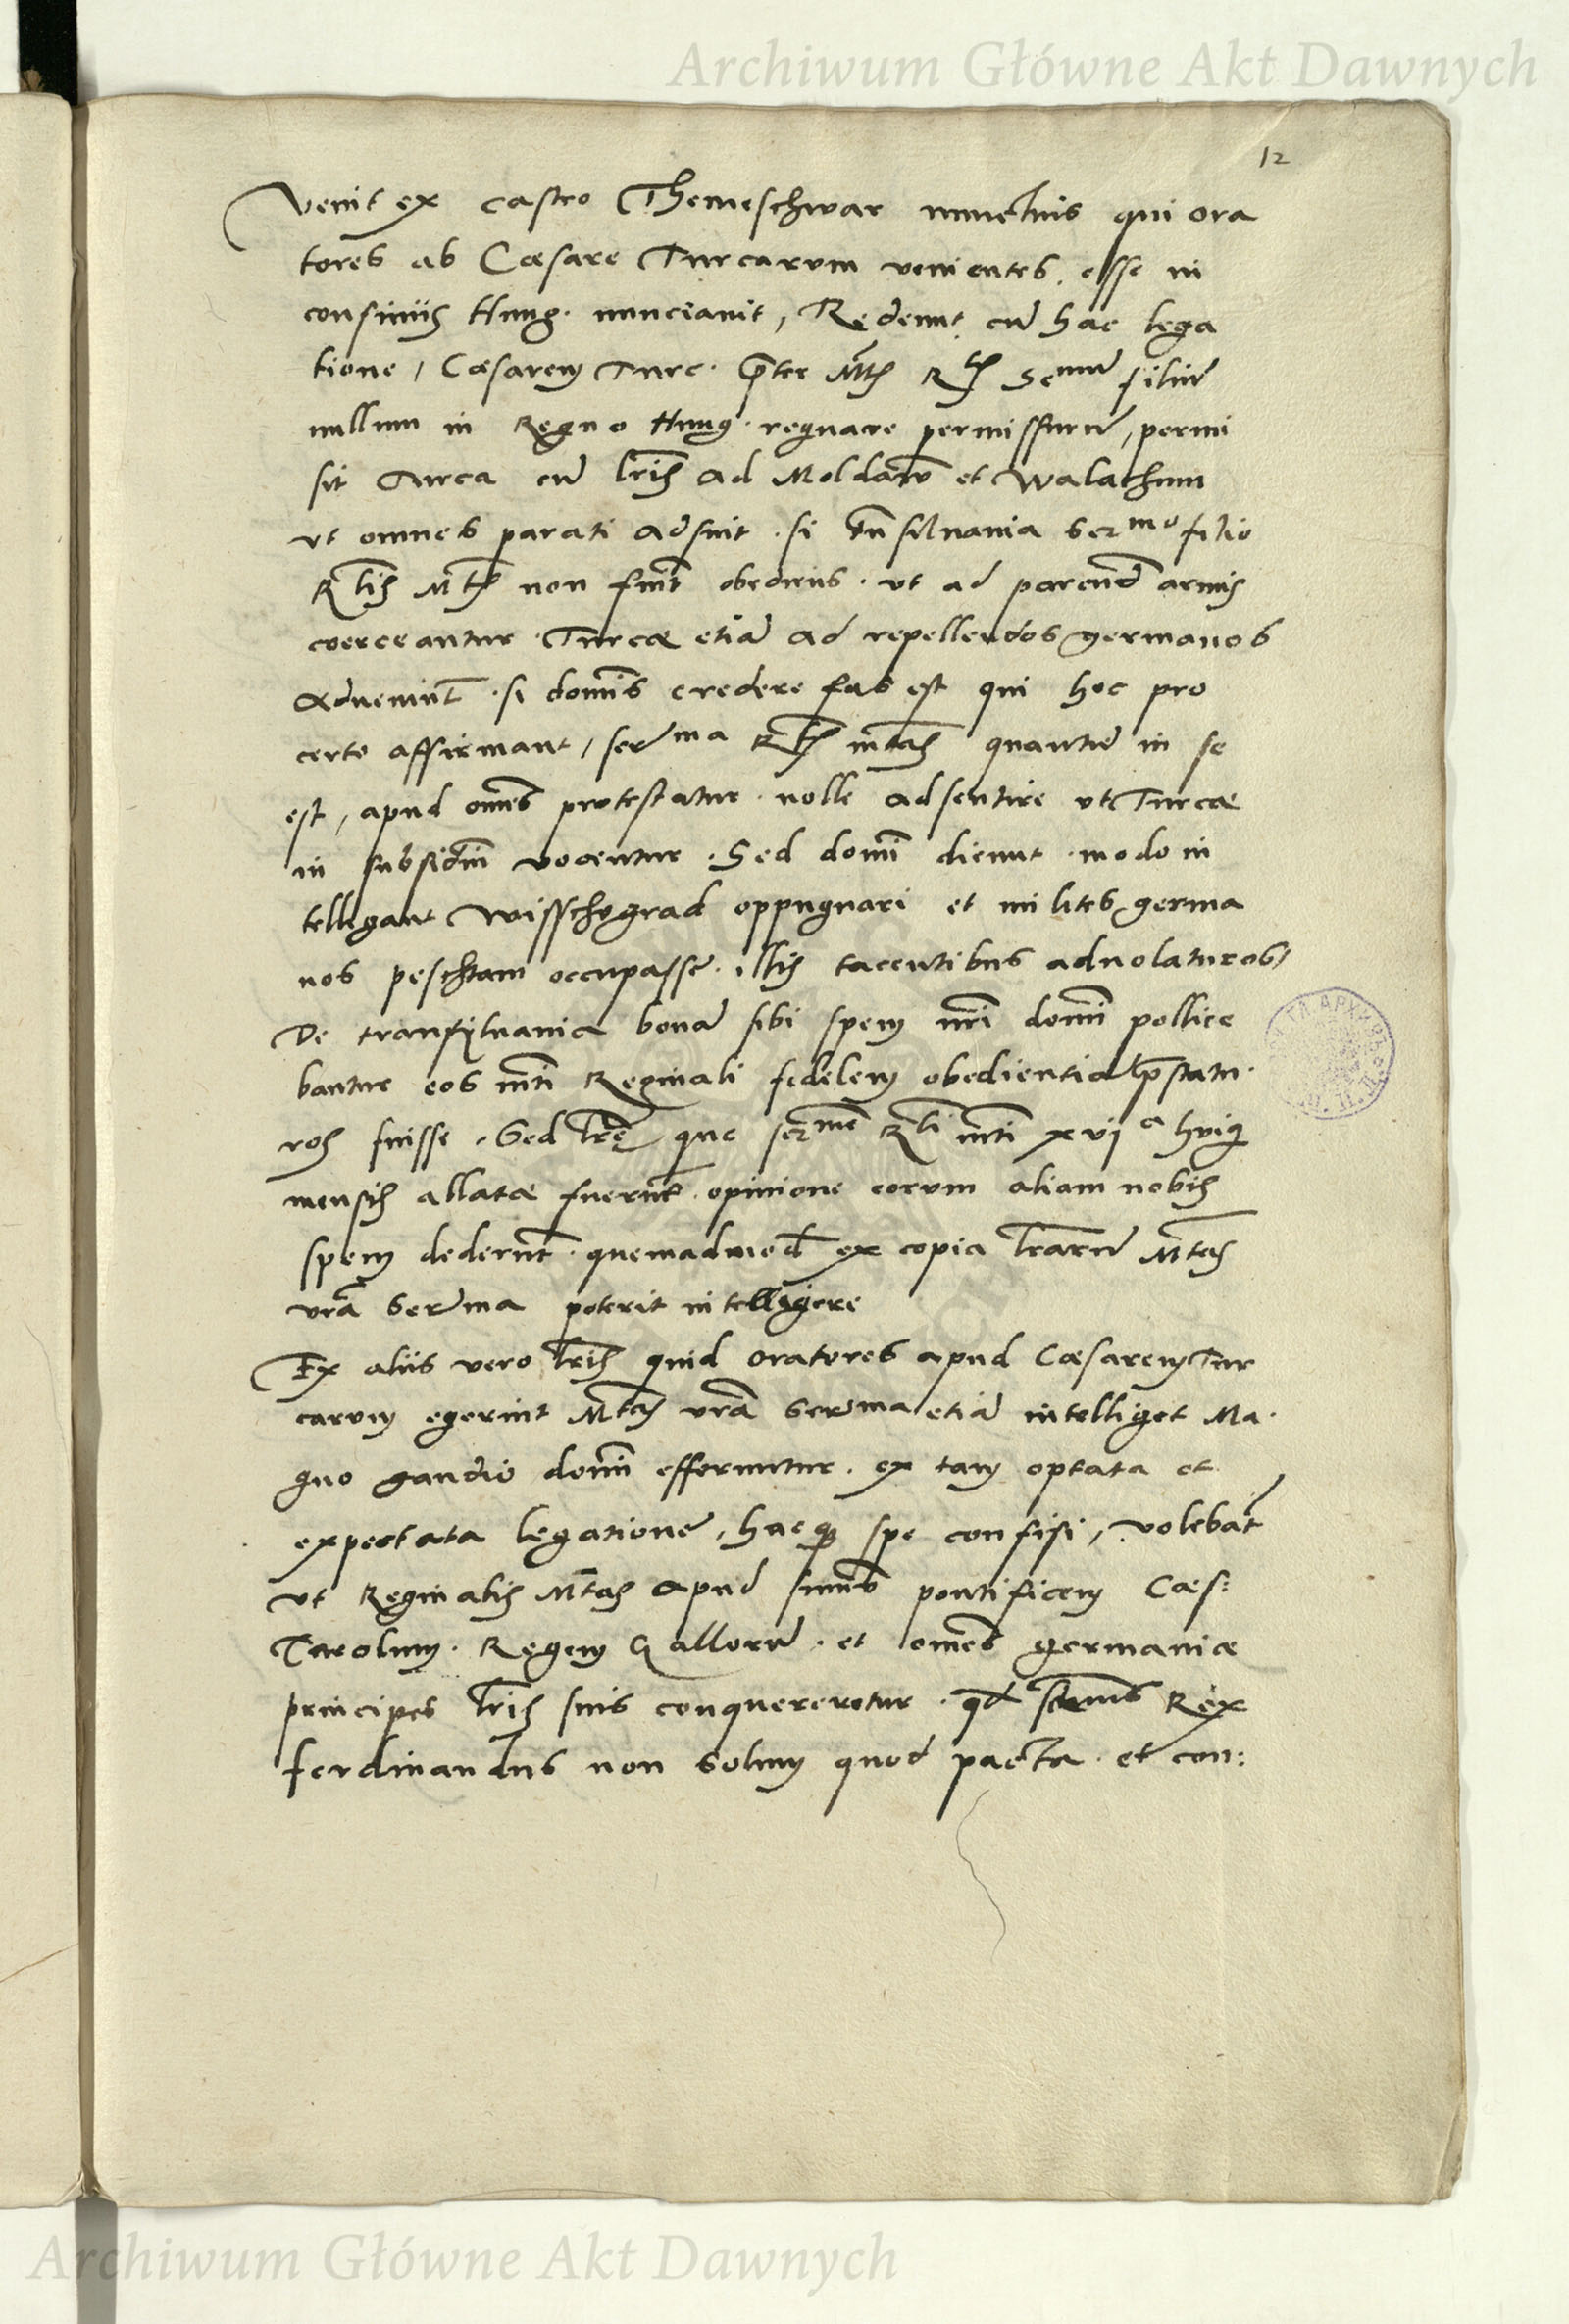 Archiwum Główne Akt Dawnych
12
Venit ex castro Themeschwar nunctius qui ora
tores ab Cæsare Turcarum venientes. esse in
confiniis Hung. nunciauit, Redeunt cũ hac lega
tione, Cæsarem Turc. p̃ter Mt̃s Rtis Semum filiũ
nullum in Regno Hung. regnare permissurũ, permi
sit Turca cũ lr̃is ad Moldauũ et Walachum
vt omnes parati adsint. si trãnsiluania sermo filio
Rtis Mts non sint obediens. vt ad parend̃ armis
coerceantur. Turcæ etiã ad repellendos germanos
adueniũt. si dom̃is credere fas est qui hoc pro
certo affirmant, serma Rtis mtas quantũ in se
est, apud om̃es protestatur. nolle adsentire vt Turcæ
in subsidiũ vocentur. Sed domĩ dicunt. modo in
telligant Wisschegrad oppugnari et milites germa
nos peschtam occupasse. illis tacentibus aduolaturos,
De transyluania bonã sibi spem nr̃i domĩ pollice
bantur eos mt̃i Reginali fidelem obedientiã p̃statu.
ros fuisse. Sed lr̃e que serme Rli mt̃i xvija huiq
mensis allatæ fuerũt. opinione eorum aliam nobis
spem dederũt. quemadmod̃ ex copia lr̃arũ Mtas
vrã serma poterit intelligere
Ex aliis vero lr̃is quid oratores apud Cæsarem Tur
carum egerint Mtas vrã serma etiã intelliget Ma.
gno gaudio domĩ efferuntur. ex tam optata et
expectata legatione, hac q̨ spe confisi, volebãt
vt Reginalis Mtas apud sum̃u pontificem Cæs:
Carolum. Regem Gallorũ. et om̃es germaniæ
principes lr̃is suis conquereretur. qd̃ sermus Rex
ferdinandus non solum quod pacta. et con:
Archiwum Główne Akt Dawnych